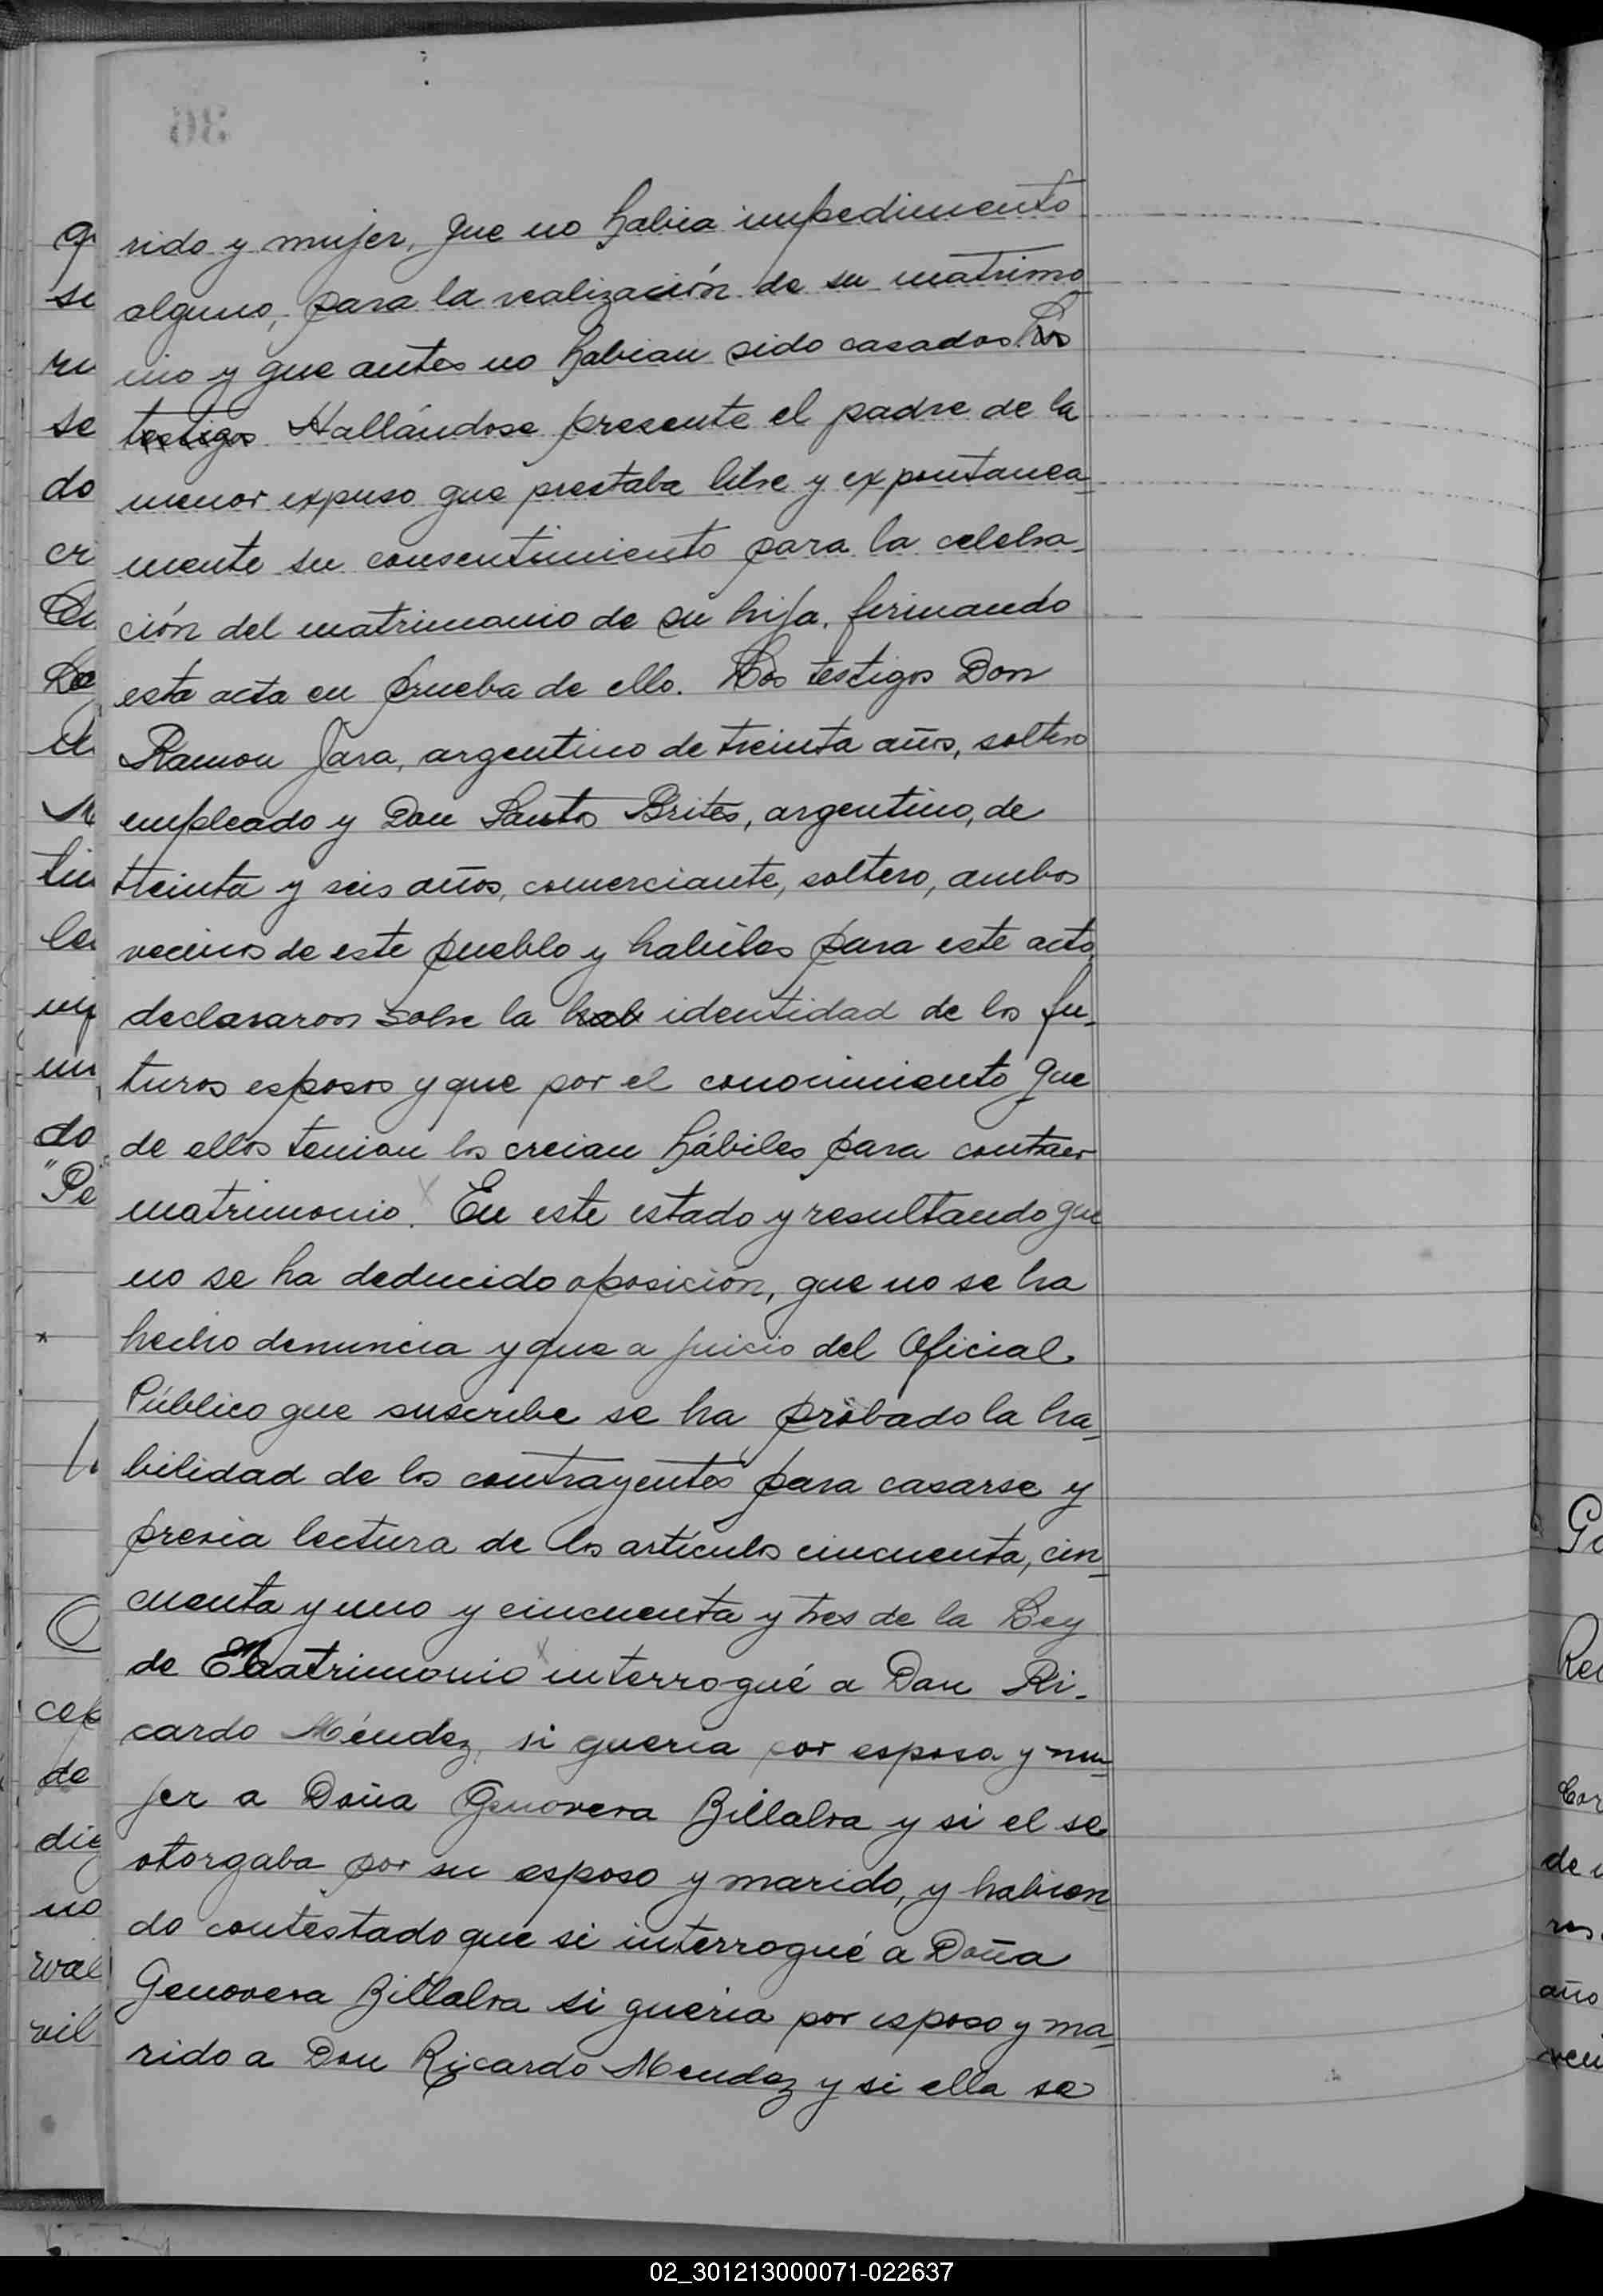 rido y mujer, que no habia impedimento
alguno, para la realización de su matrimo
nio y que antes no habian sido casados. Los
testigos Hallándose presente el padre de la
menor expuso que prestaba libre y expontanea-
mente su consentimiento para la celebra-
ción del matrimonio de su hija, firmando
esta acta en prueba de ello. Los testigos Don
Ramon Jara, argentino de treinta años, soltero
empleado y Don Santos Brites, argentino, de
treinta y seis años, comerciante, soltero, ambos
vecinos de este pueblo y habiles para este acto,
declararon sobre la hab identidad de los fu-
turos esposos y que por el conocimiento que
de ellos tenian los creian hábiles para contraer
matrimonio. En este estado y resultando que
no se ha deducido oposición, que no se ha
hecho denuncia y que a juicio del Oficial
Público que suscribe se ha probado la ha-
bilidad de los contrayentes para casarse y
previa lectura de los artículos cincuenta, cin-
cuenta y uno y cincuenta y tres de la Ley
de Matrimonio interrogué a Don Ri-
cardo Méndez, si queria por esposa y mu-
jer a Doña Genoveva Billalva y si el se
otorgaba por su esposo y marido, y habien-
do contestado que si interrogué a Doña
Genoveva Billalva si queria por esposo y ma-
rido a Don Ricardo Mendez y si ella se
02_301213000071-022637